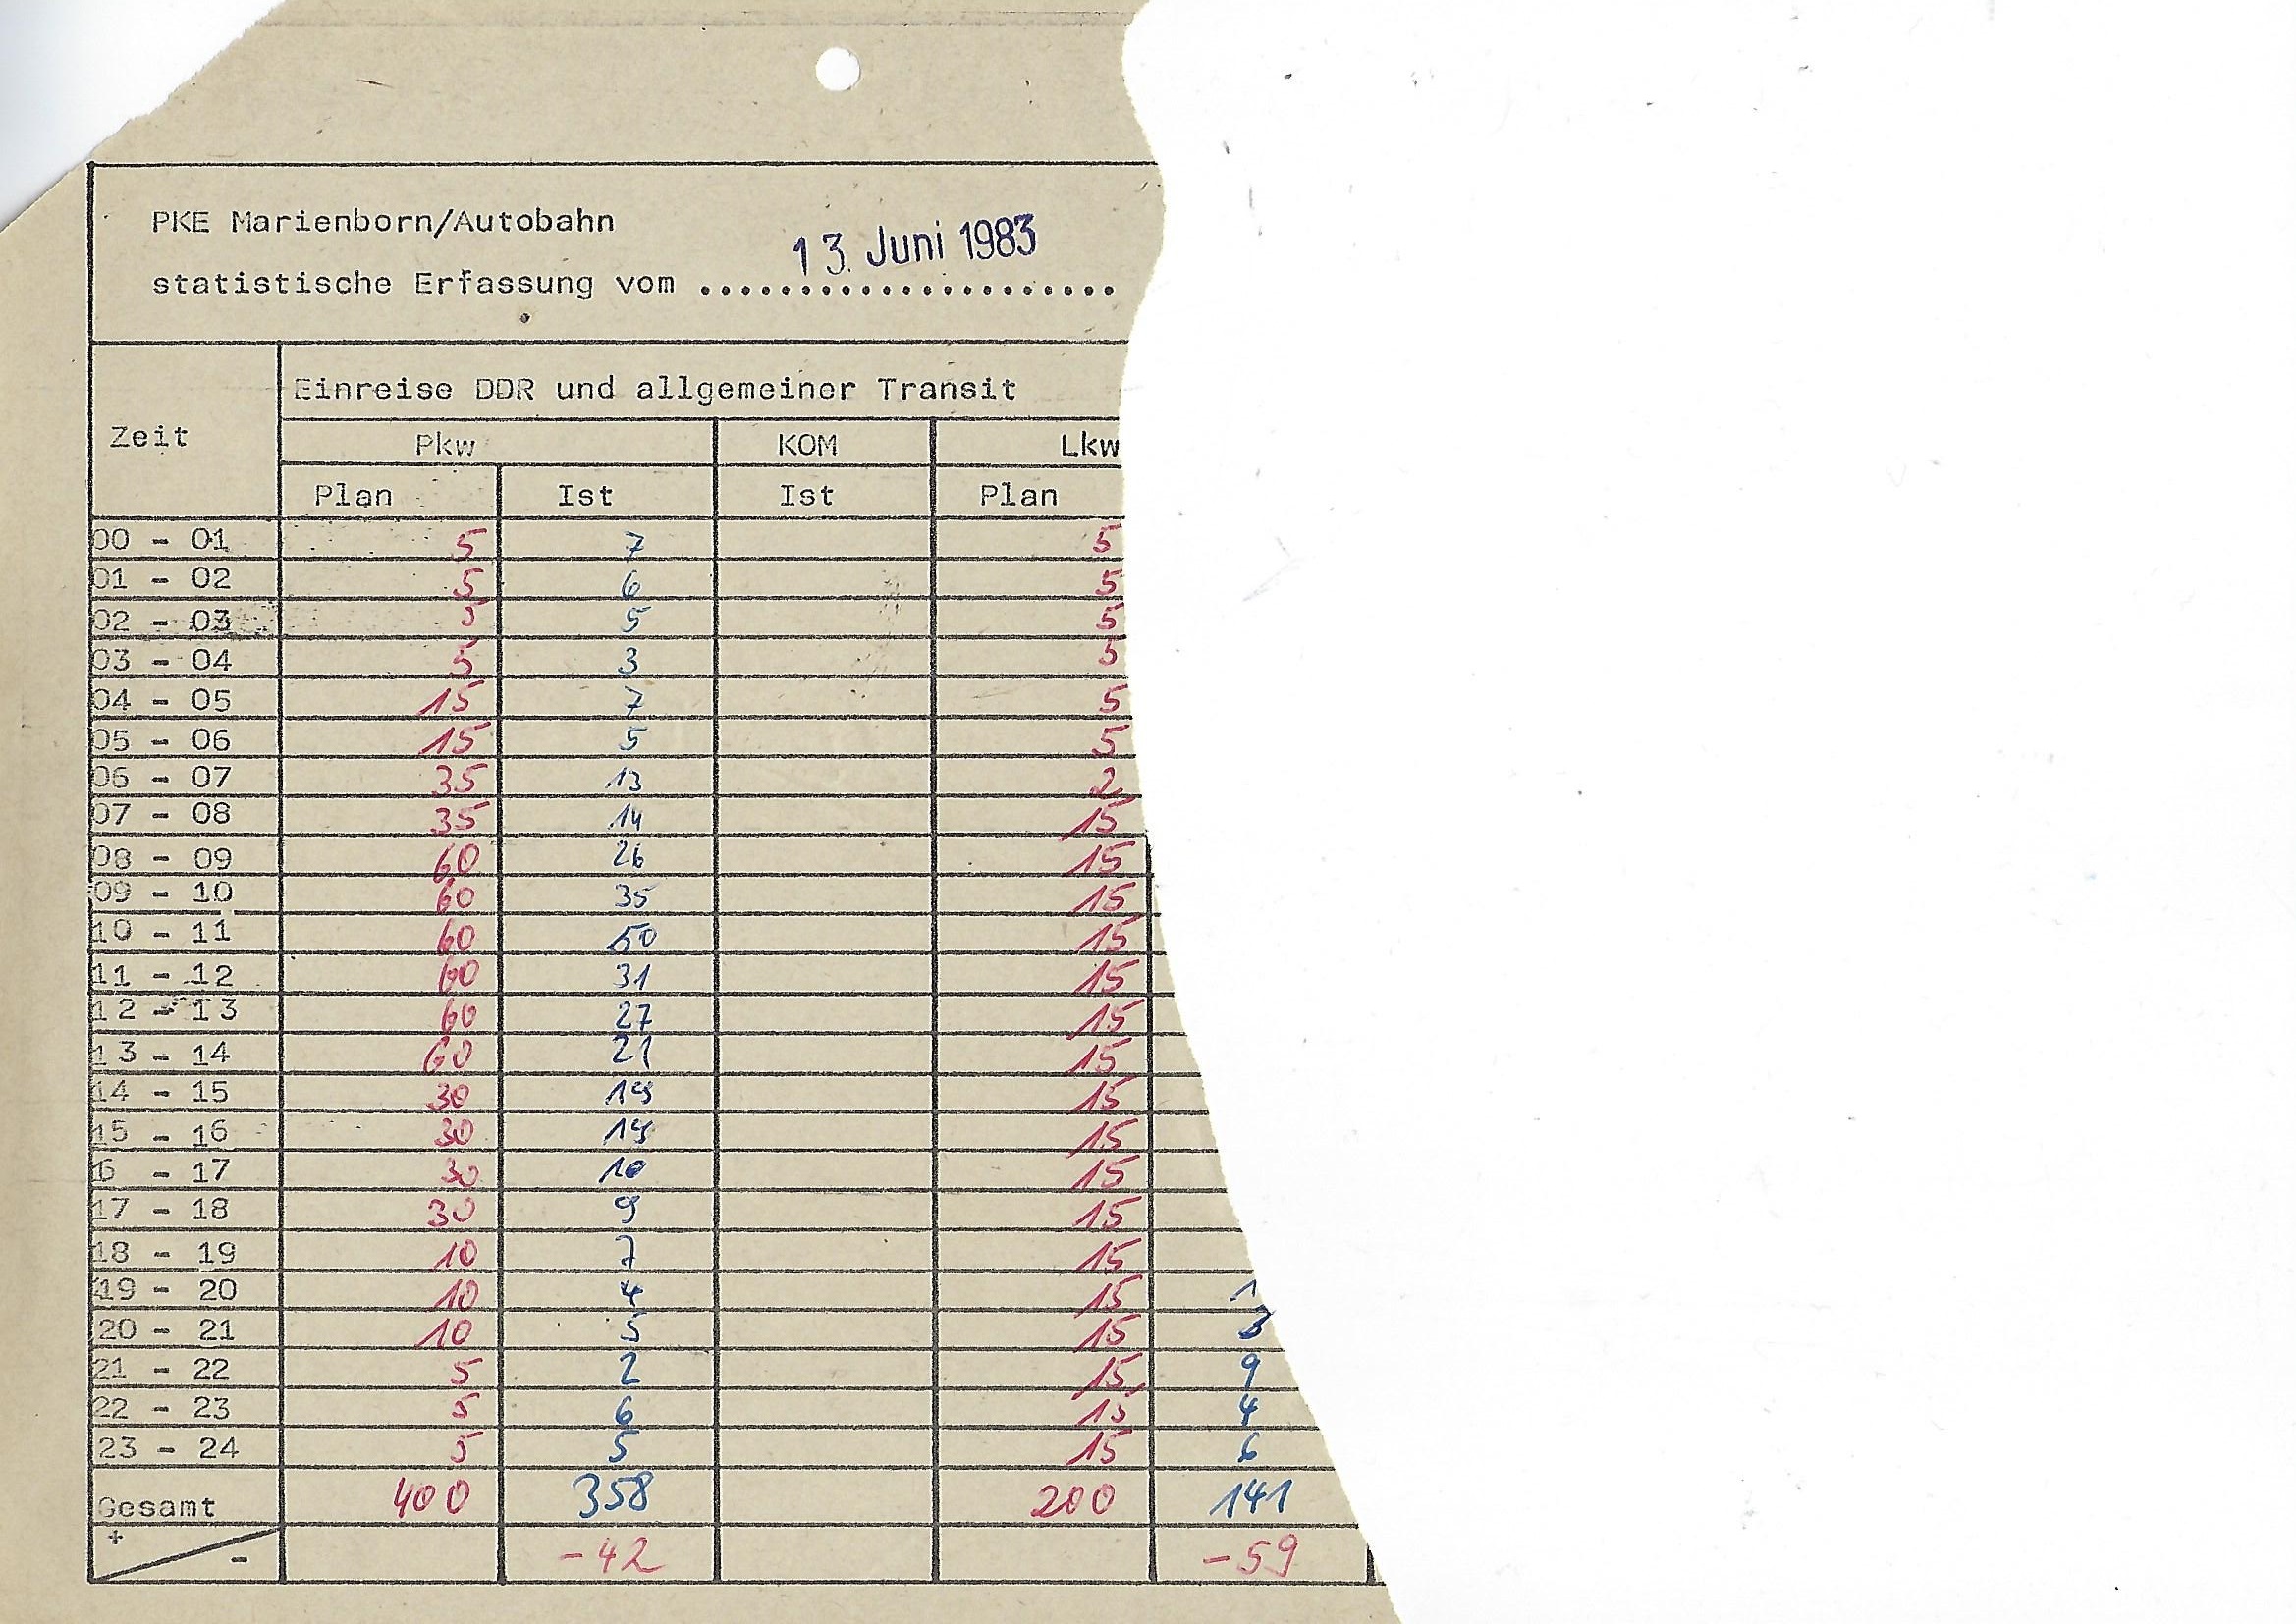 PKE Marienborn/Autobahn
13. Juni 1983
statistische Erfassung vom ......................
Zeit
Einreise DDR und allgemeiner Transit
Pkw KOM Lkw
Plan Ist Ist Plan
00 - 01 5 7 5
01 - 02 5 6 5
02 - 03 5 5 5
03 - 04 5 3 5
04 - 05 15 7 5
05 - 06 15 5 5
06 - 07 35 13 2
07 - 08 35 14 15
08 - 09 60 26 15
09 - 10 60 35 15
10 - 11 60 50 15
11 - 12 60 31 15
12 - 13 60 27 15
13 - 14 60 21 15
14 - 15 30 15
15 - 16 30 15
6 - 17 30 10 15
17 - 18 30 9 15
18 - 19 10 7 15
19 - 20 10 4 15 1
20 - 21 10 5 15 3
21 - 22 5 2 15 9
22 - 23 5 6 15 4
23 - 24 5 5 15 6
Gesamt 400 358 200 141
+ - -42 -59